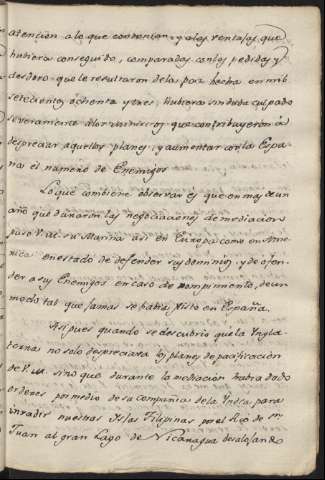 atencion a lo que contenian, y a las ventajas que
hubiera conseguido, comparadas con los pedidos y
desdoro que le resultaron de la paz hecha en mil
setecientos ochenta y tres, hubiera sin duda culpado
severamente a los Ministros que contribuyeron à
despreciar aquellos planes, y aumentar con la Espa-
ña el numero de Enemigos.
Lo que combiene observar es que en mas de un
año que duraron las negociaciones de mediacion
puso V. M. su Marina asi en Europa como en Ame-
rica en estado de defender sus dominios, y de ofen-
der a sus Enemigos en caso de rompimiento, de un
modo tal que jamas se habia visto en España.
Asi pues quando se descubrio que la Ingla-
terra no solo despreciava los planes de pacificacion
de V. M. sino que durante la mediacion habia dado
ordenes por medio de su compañia de la India para
invadir nuestras Islas Filipinas por el Rio de Sn
Juan al gran Lago de Nicaragua